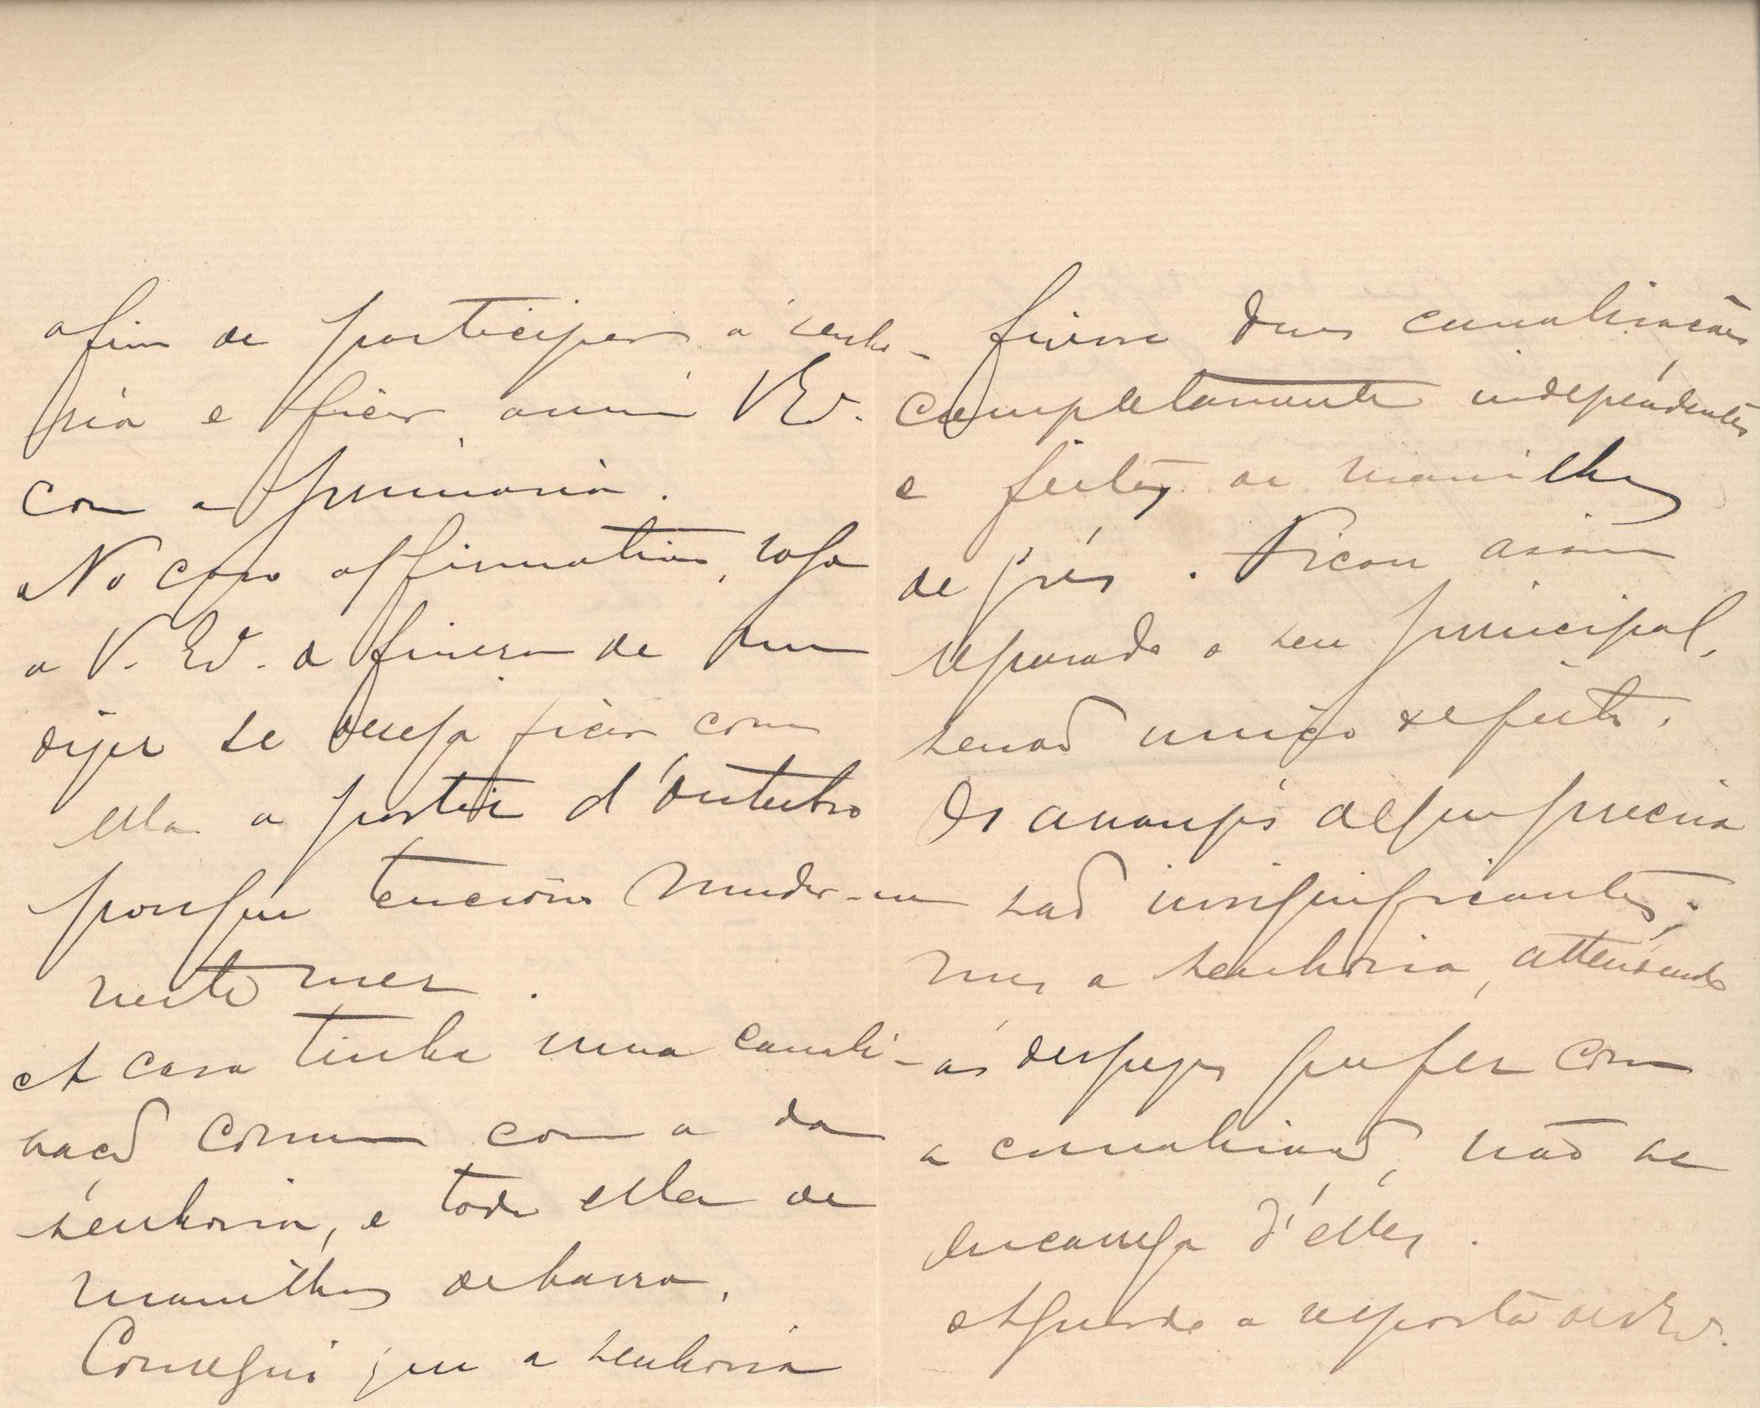 afim de participar á senho-
ria e ficar assim V Ex.
com a primasia.
No caso affirmativo, rogo
a V. Ex. a fineza de me
dizer se deseja ficar com
ella a partir d'Outubro
porque tenciono mudar-me
neste mez.
A casa tinha uma canali-
sação commum com a da
senhoria, e toda ella de
manilhas de barro.
Consegui que a senhoria
fizesse duas canalisações
completamente independentes
e feitas de manilhas
de grés. Ficou assim
reparado o seu principal,
senão unico defeito.
Os arranjos de que precisa
são insignificantes.
mas a senhoria, attendendo
ás despezas que fez com
a canalisação, não se
encarrega d'elles.
Aguardo a resposta de V Ex.